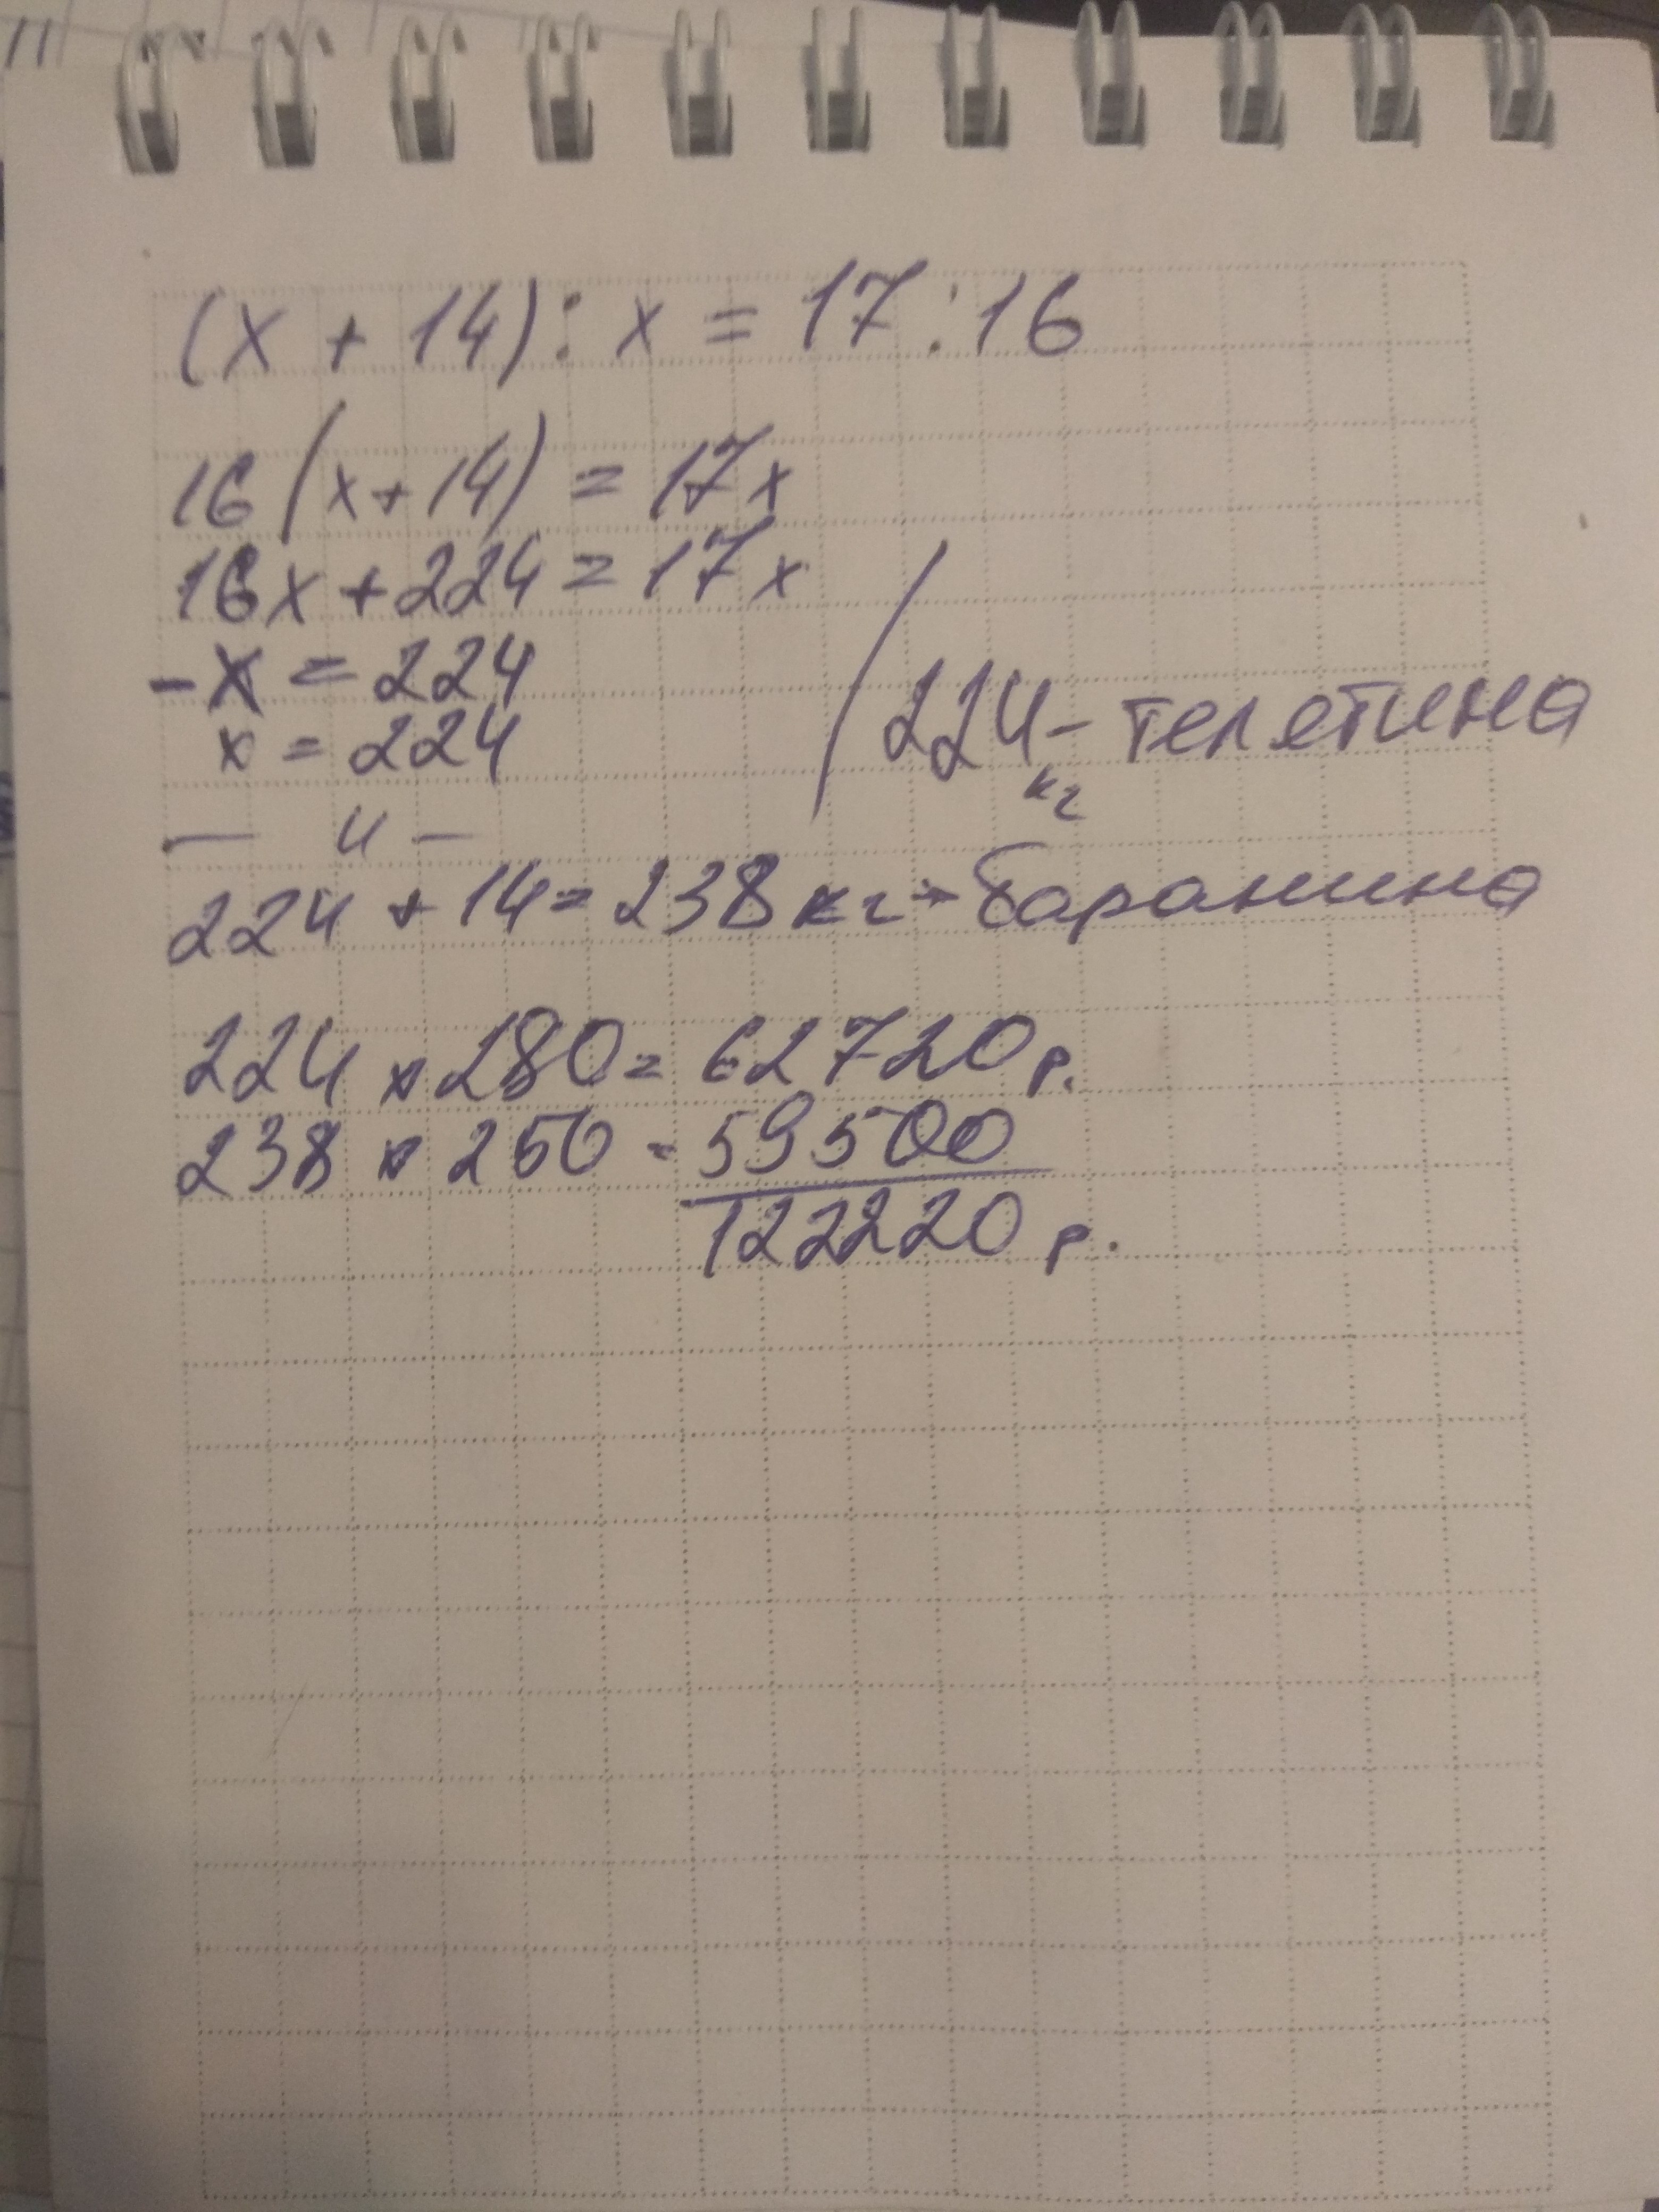 (x + 14) : x = 17 : 16
16 (x + 14) = 17x
16x + 224 = 17x
- x = 224
x = 224
/ 224 - телетина
кг
— и —
224 + 14 = 238 кг - баранина
224 × 280 = 62720 р.
238 × 250 - 59500
122220 р.